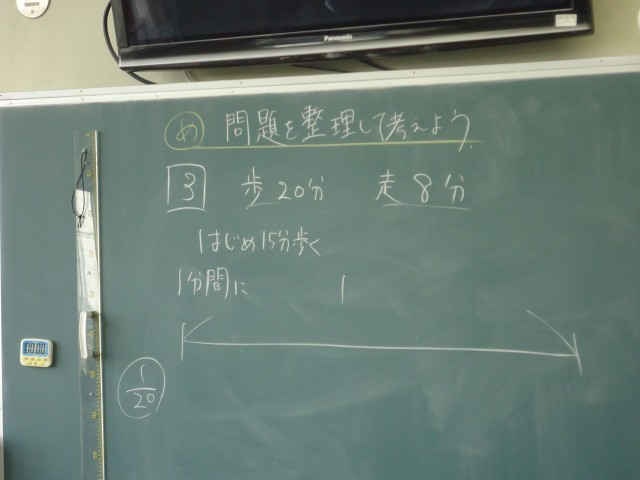 Panasonic
め 問題を整理して考えよう。
3 歩20分 走8分
はじめ15分歩く
1分間に
1
1/20
00:00